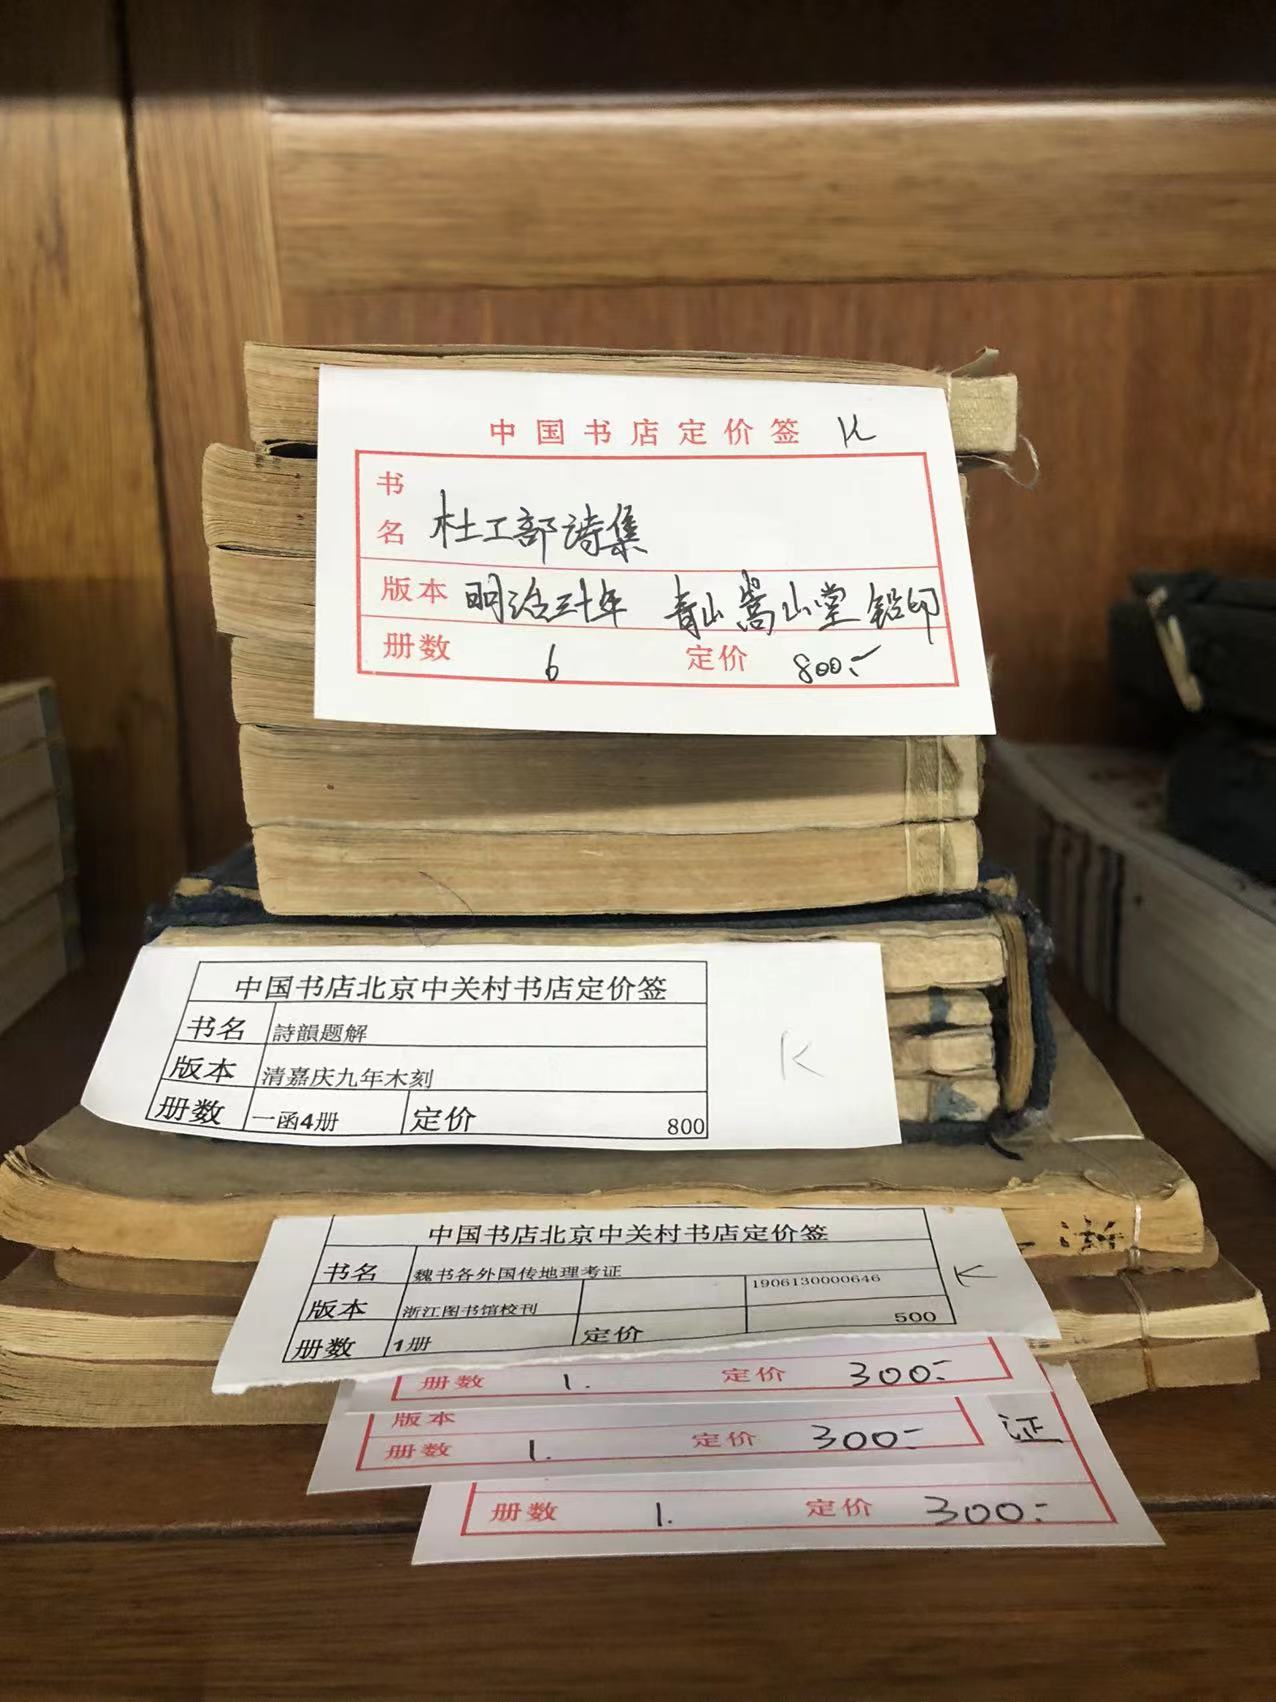 中国书店定价签 K
书名 杜工部诗集
版本 明治三十年 青山嵩山堂 铅印
册数 6 定价 800.-
中国书店北京中关村书店定价签
书名 詩韻题解
K
版本 清嘉庆九年木刻
册数 一函4册 定价 800
浙
中国书店北京中关村书店定价签
书名 魏书各外国传地理考证 1906130000646
K
版本 浙江图书馆校刊
册数 1册 定价 500
册数 1. 定价 300.-
版本
证
册数 1. 定价 300.-
册数 1. 定价 300.-